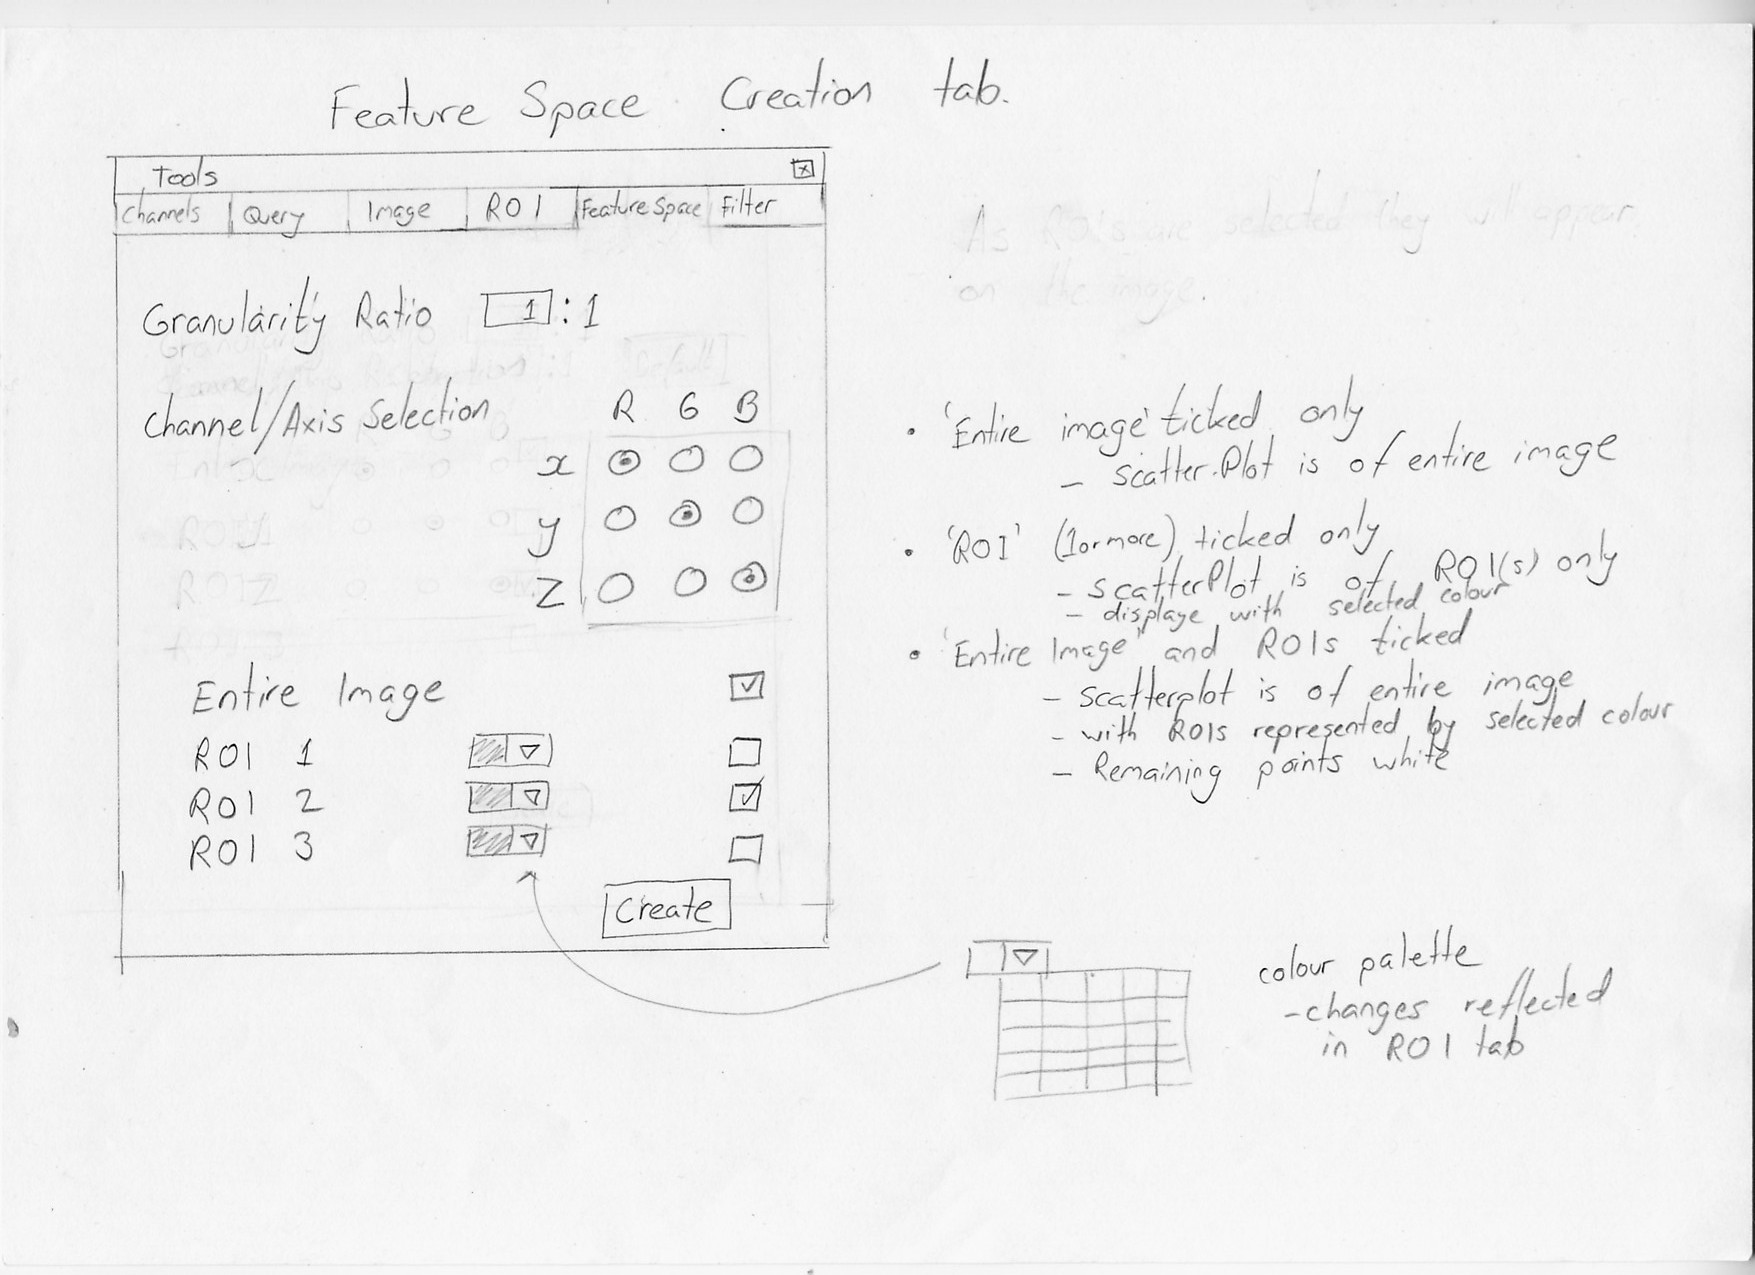 Feature Space Creation tab.
Tools
Channels Query Image ROI Feature Space Filter
Granularity Ratio 1 : 1
Channel/Axis Selection R G B
x
y
z
Entire Image
ROI 1
ROI 2
ROI 3
Create
As ROIs are selected they will appear
on the image.
• 'Entire image' ticked only
- scatter Plot is of entire image
• 'ROI' (1 or more) ticked only
- scatterPlot is of ROI(s) only
- displaye with selected colour
• 'Entire Image" and ROIs ticked
- scatterplot is of entire image
- with ROIs represented by selected colour
- Remaining points white
colour palette
- changes reflected
in ROI tab